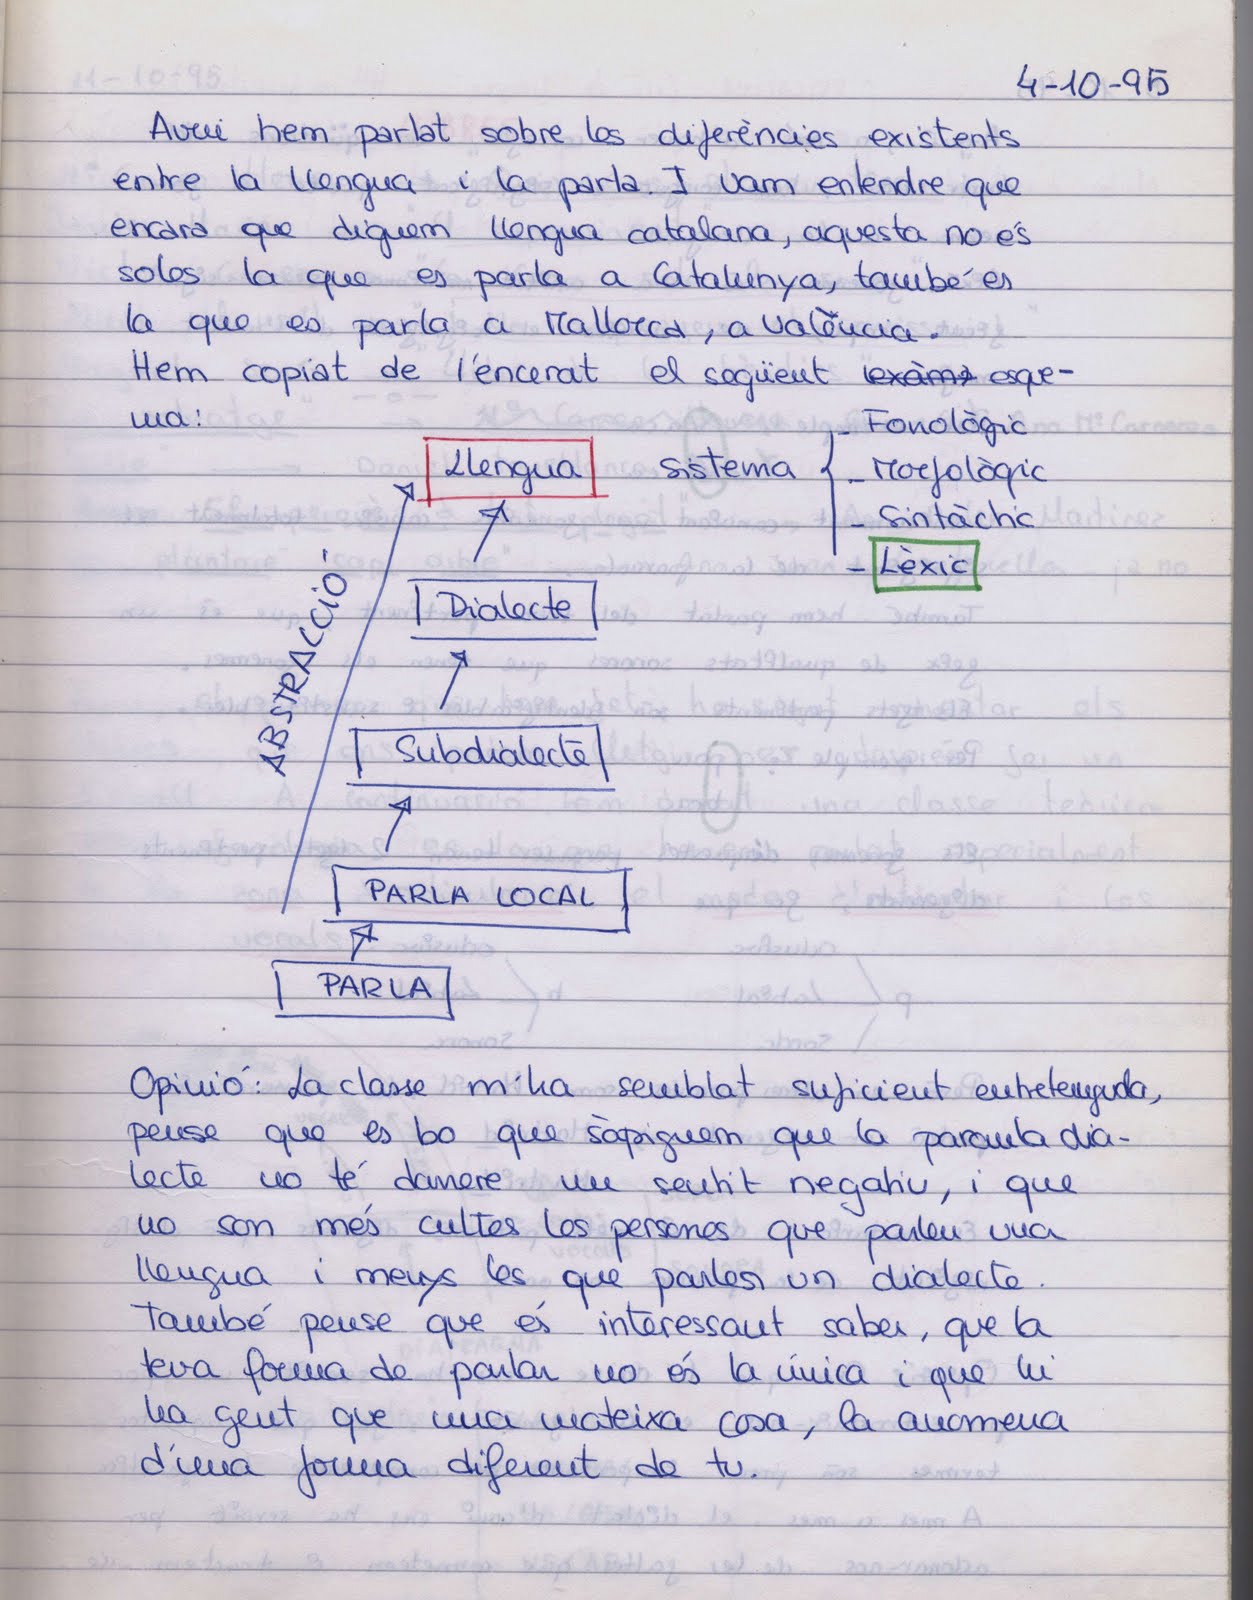 4-10-95
Avui hem parlat sobre les diferències existents
entre la llengua i la parla. I vam entendre que
encara que diguem llengua catalana, aquesta no és
soles la que es parla a Catalunya, també és
la que es parla a Mallorca, a València.
Hem copiat de l'encerat el següent exàme esque-
ma:
Llengua sistema
- Fonològic
- Morfològic
- Sintàctic
- Lèxic
ABSTRACCIÓ
Dialecte
Subdialecte
PARLA LOCAL
PARLA
Opinió: La classe m'ha semblat suficient entretenguda,
pense que es bo que sàpiguem que la paraula dia-
lecte no té darrere un sentit negatiu, i que
no son més cultes les persones que parlen una
llengua i menys les que parlen un dialecte.
També pense que és interessant saber, que la
teva forma de parlar no és la única i que hi
ha gent que una mateixa cosa, la anomena
d'una forma diferent de tu.